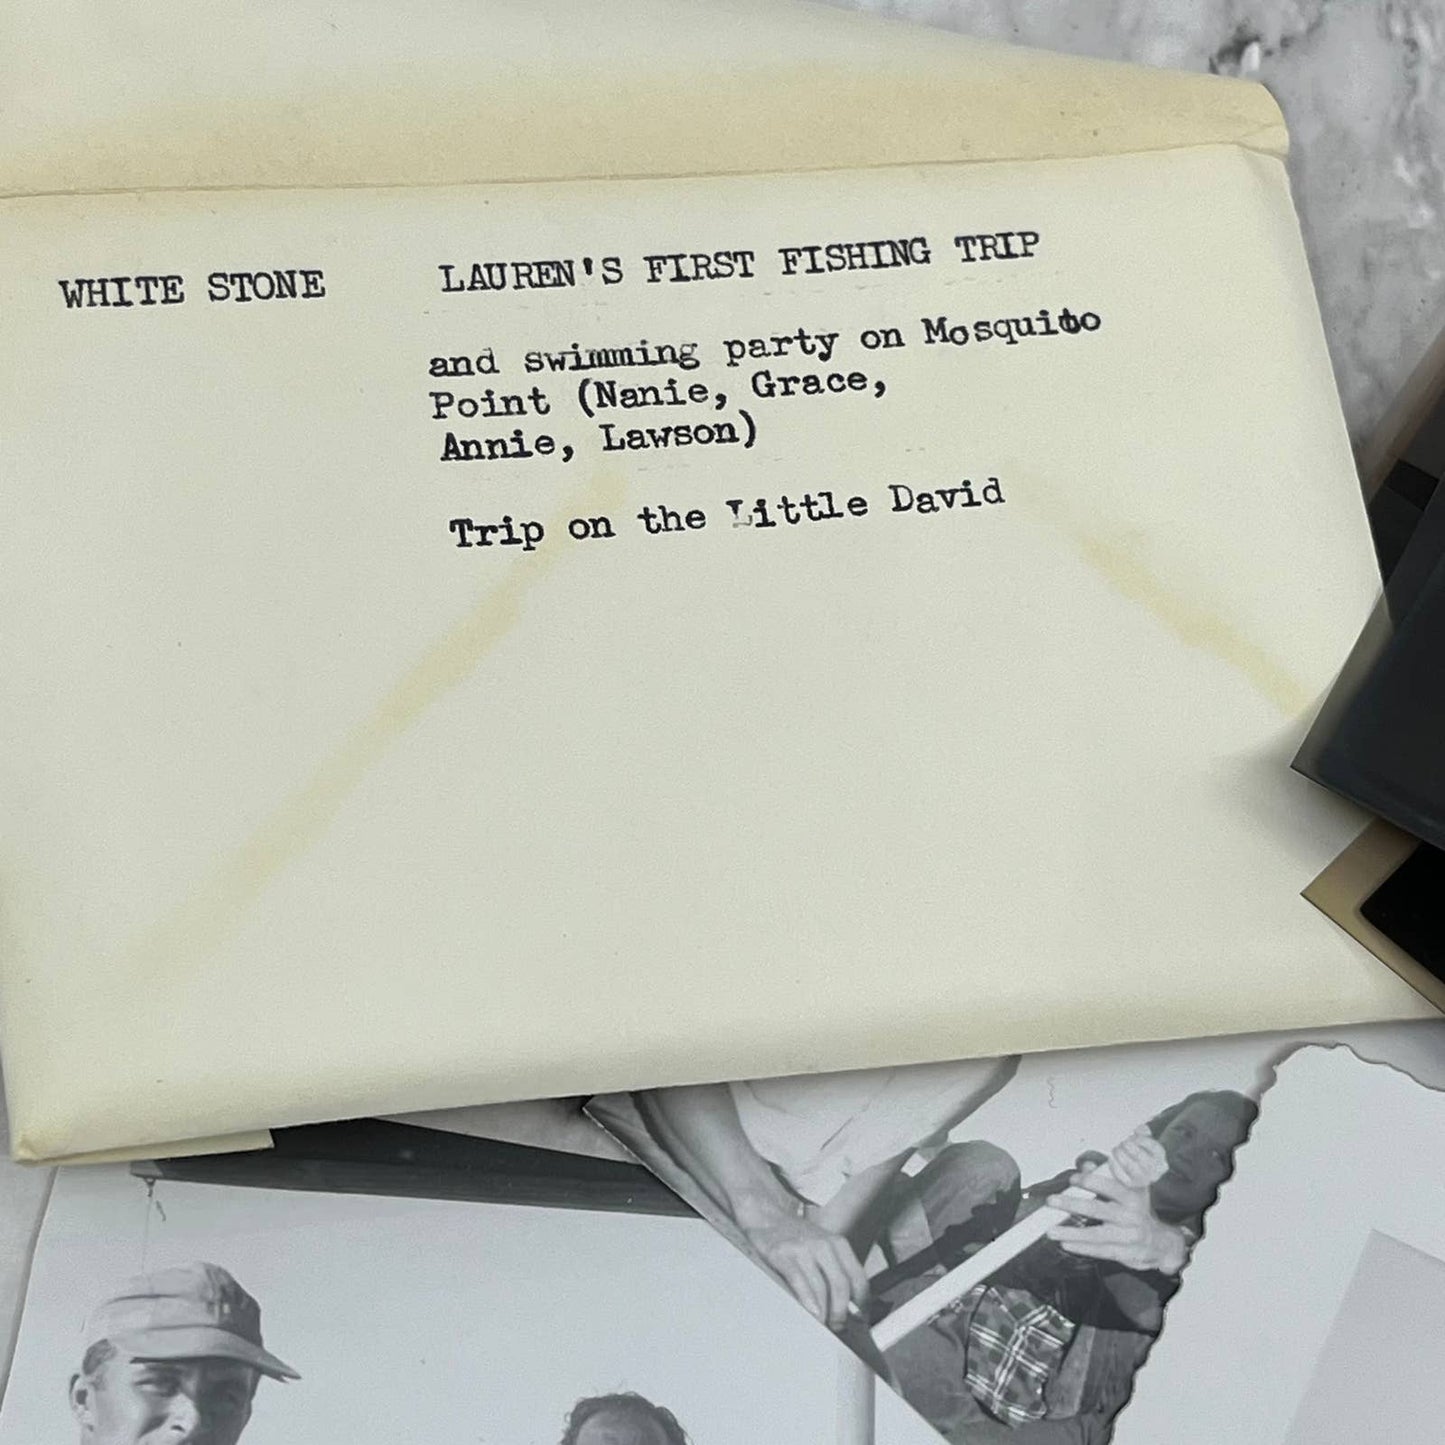 WHITE STONE LAUREN'S FIRST FISHING TRIP
and swimming party on Mosquito
Point (Nanie, Grace,
Annie, Lawson)
Trip on the Little David